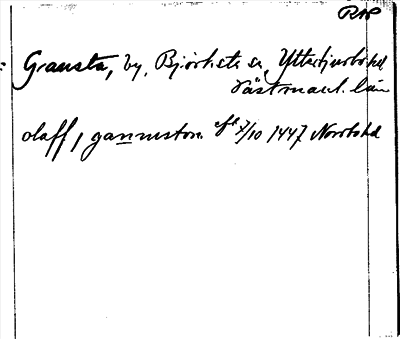 RAP
Gransta, by, Björksta sn, Yttertjurbo hd
Västmanl. län
olaff, gannuston. efr 7/10 1447 Norrbo hd